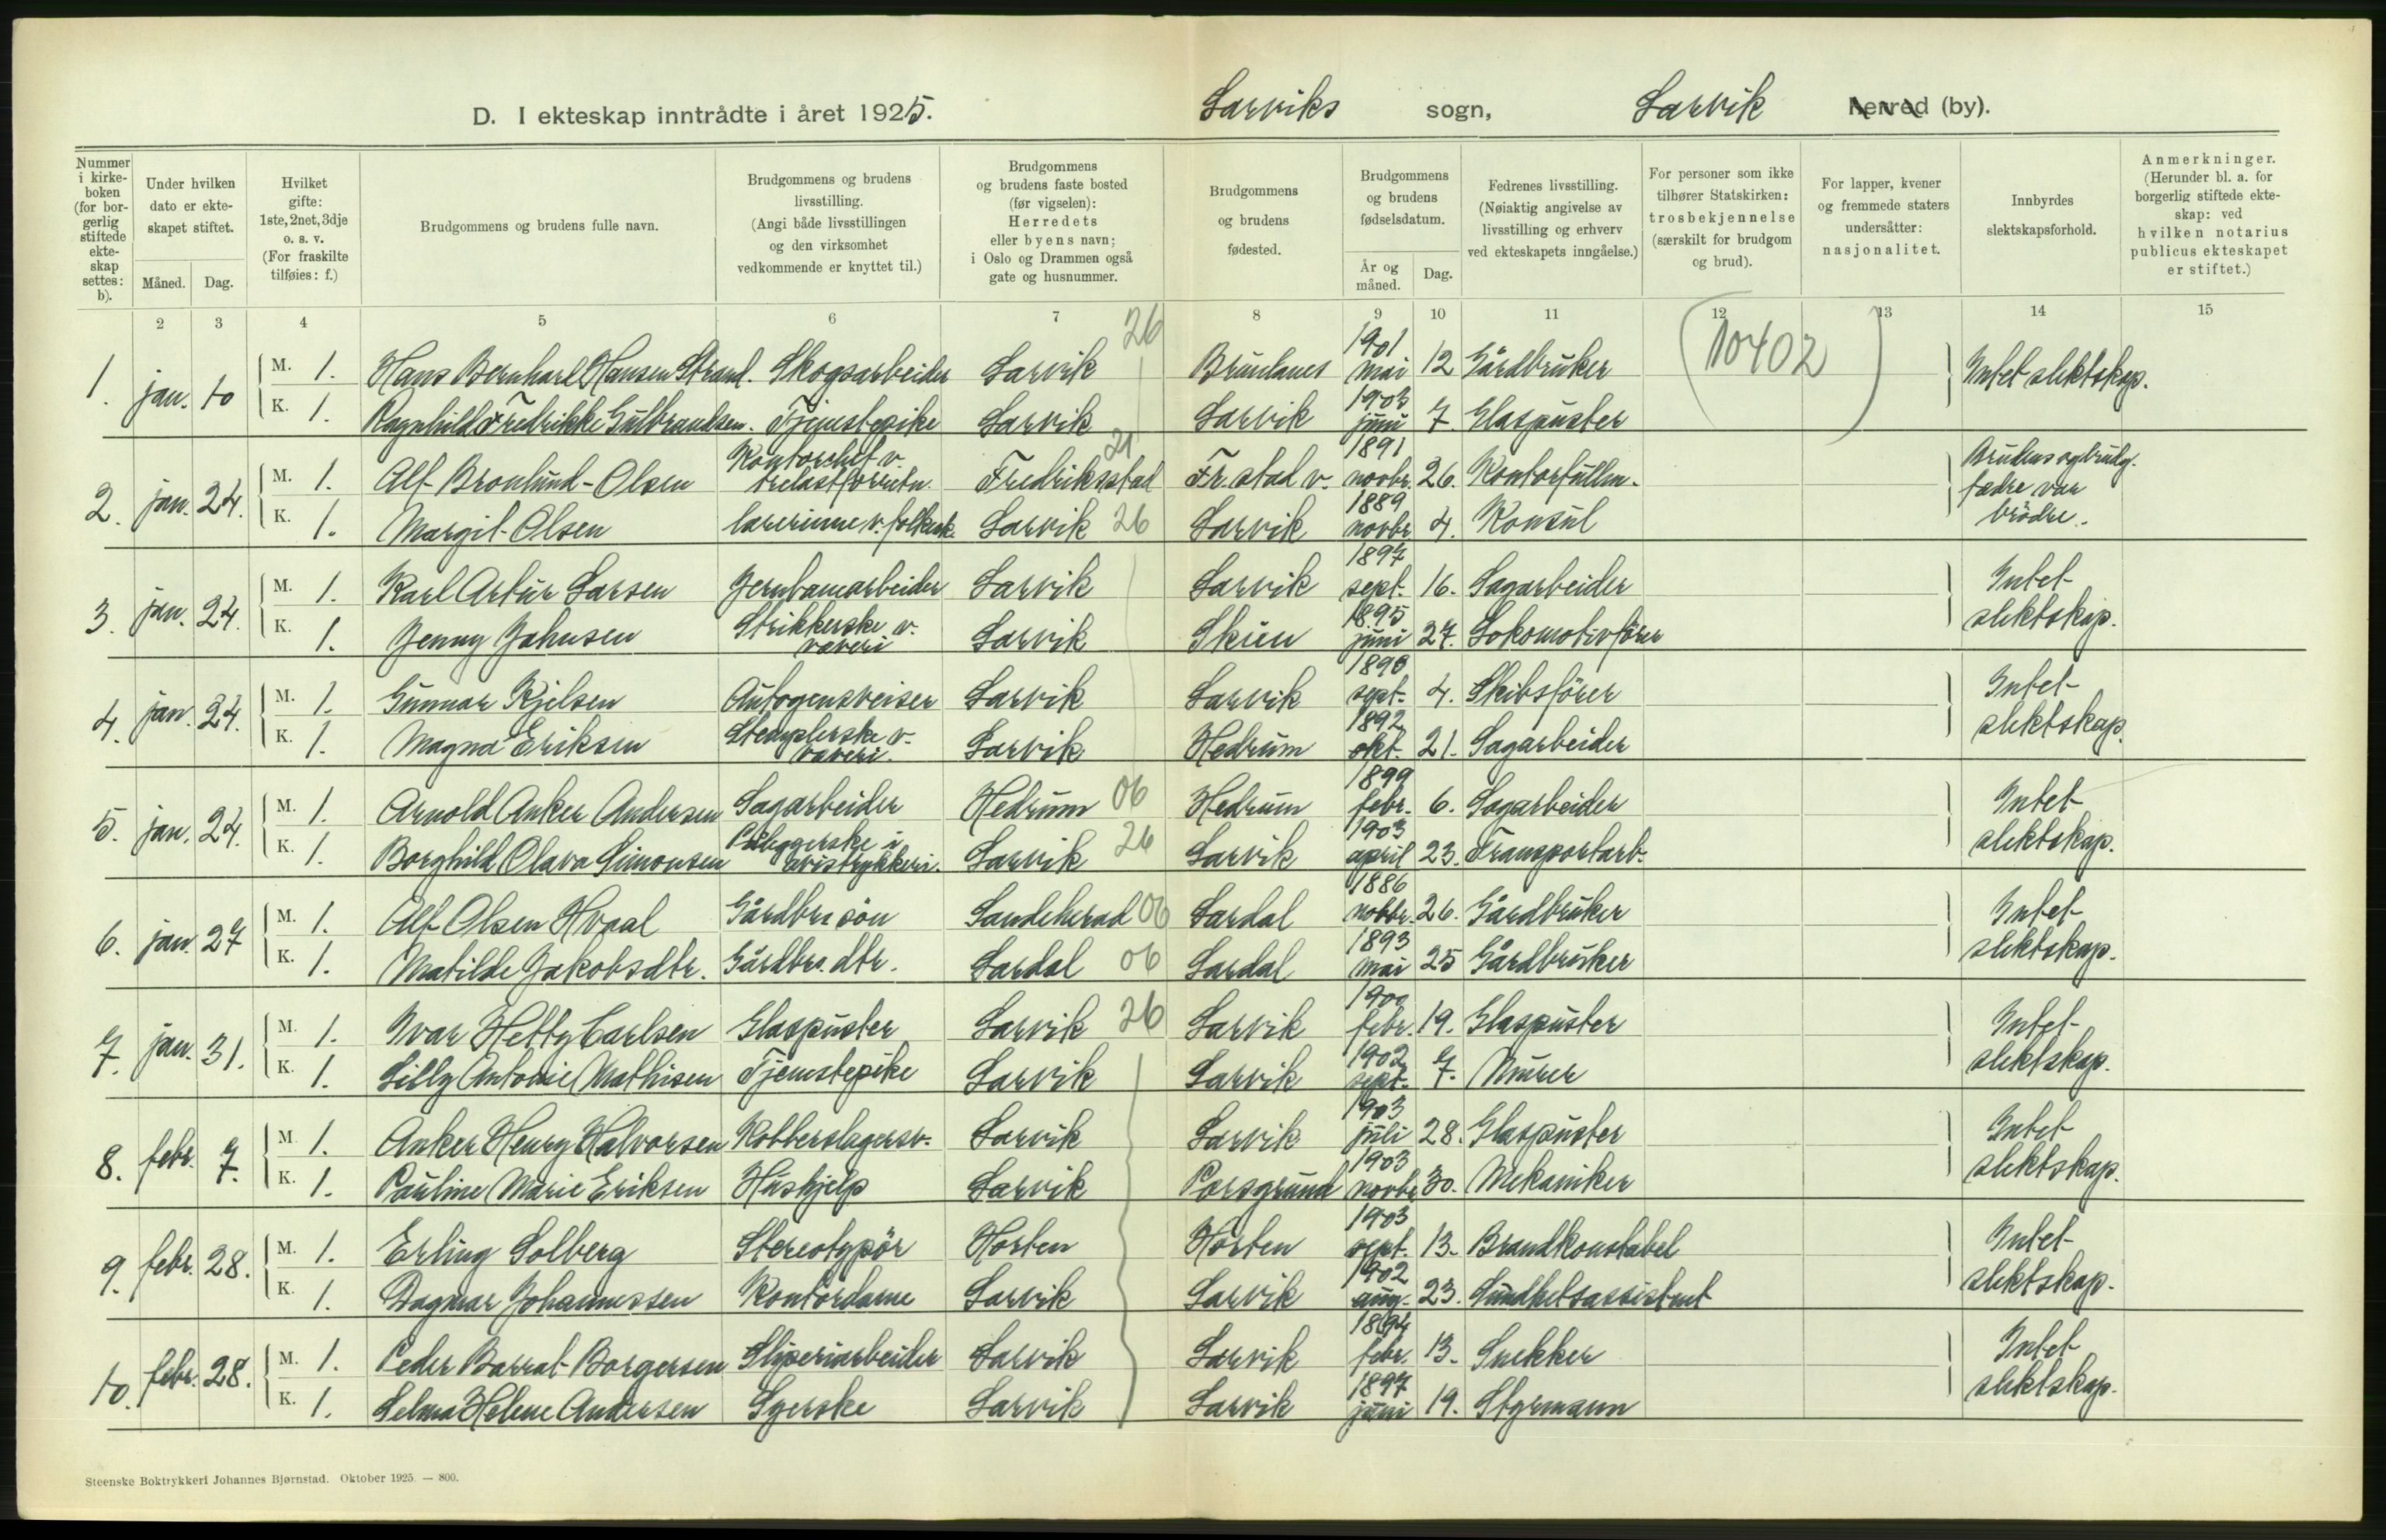 D. I ekteskap inntrådte i året 1925. Larviks sogn, Larvik herred (by).
Nummer i kirke-boken (for bor-gerlig stiftede ekte-skap settes: b).
Under hvilken dato er ekte-skapet stiftet.
Måned. Dag.
Hvilket gifte: 1ste, 2net, 3dje o. s. v. (For fraskilte tilføies: f.)
Brudgommens og brudens fulle navn.
Brudgommens og brudens livsstilling. (Angi både livsstillingen og den virksomhet vedkommende er knyttet til.)
Brudgommens og brudens faste bosted (før vigselen): Herredets eller byens navn; i Oslo og Drammen også gate og husnummer.
Brudgommens og brudens fødested.
Brudgommens og brudens fødselsdatum.
År og måned. Dag.
Fedrenes livsstilling. (Nøiaktig angivelse av livsstilling og erhverv ved ekteskapets inngåelse.)
For personer som ikke tilhører Statskirken: trosbekjennelse (særskilt for brudgom og brud).
For lapper, kvener og fremmede staters undersåtter: nasjonalitet.
Innbyrdes slektskapsforhold.
Anmerkninger. (Herunder bl. a. for borgerlig stiftede ekte-skap: ved hvilken notarius publicus ekteskapet er stiftet.)
2 3 4 5 6 7 8 9 10 11 12 13 14 15
26 (10402)
1. jan. 10 M. 1. Hans Bernhard Hansen Strand. Skogsarbeider Larvik Brunlanes 1901 mai 12 Gårdbruker Intet slektskap.
K. 1. Ragnhild Fredrikke Gulbrandsen. Tjenestepike Larvik Larvik 1903 juni 7. Glaspuster
2. jan. 24. M. 1. Alf Bronlund-Olsen Kontorchef v. trelastforretn. Fredriksstad 21 Fr.stad v. 1891 novbr. 26. Kontorfullm. Brudens og brudg. fædre var brödre.
K. 1. Margit Olsen lærerinne v. folkesk. Larvik 26 Larvik 1889 novbr. 4. Konsul
3. jan. 24. M. 1. Karl Artur Larsen Jernbanearbeider Larvik Larvik 1897 sept. 16. Sagarbeider Intet slektskap.
K. 1. Jenny Johnsen Strikkerske v. væveri Larvik Skien 1895 juni 27. Lokomotivfører
4. jan. 24. M. 1. Gunnar Kjelsen Autogensveiser Larvik Larvik 1890 sept. 4. Skibsfører Intet slektskap.
K. 1. Magna Eriksen Stemplerske v. væveri. Larvik Hedrum 1892 okt. 21. Sagarbeider
5. jan. 24. M. 1. Arnold Anker Andersen Sagarbeider Hedrum 06 Hedrum 1899 febr. 6. Sagarbeider Intet slektskap.
K. 1. Borghild Olava Simonsen i avistrykkeri. Larvik 26 Larvik 1903 april 23. Transportarb.
6. jan. 27 M. 1. Alf Olsen Hvaal Gårdbr. sön Sandeherad 06 Lardal 1886 novbr. 26. Gårdbruker Intet slektskap.
K. 1. Matilde Jakobsdtr. Gårdbrs. dtr. Lardal 06 Lardal 1893 mai 25 Gårdbruker
7. jan. 31. M. 1. Ivar Hetty Carlsen Glaspuster Larvik 26 Larvik 1900 febr. 19. Glaspuster Intet slektskap.
K. 1. Lilly Antonie Mathisen Tjenestepike Larvik Larvik 1902 sept. 7. Murer
8. febr. 7. M. 1. Anker Henry Halvorsen Kobberslagersv. Larvik Larvik 1903 juli 28. Glaspuster Intet slektskap.
K. 1. Pauline Marie Eriksen Hushjelp Larvik Porsgrund 1903 novbr. 30. Mekaniker
9. febr. 28. M. 1. Erling Solberg Stereotypör Horten Horten 1903 sept. 13. Brandkonstabel Intet slektskap.
K. 1. Dagmar Johannessen Kontordame Larvik Larvik 1902 aug. 23. Sundhetsassistent
10. febr. 28. M. 1. Peder Barrat Borgersen Sliperiarbeider Larvik Larvik 1894 febr. 13. Snekker Intet slektskap.
K. 1. Selma Helene Andersen Syerske Larvik Larvik 1897 juni 19. Styrmann
Steenske Boktrykkeri Johannes Bjørnstad. Oktober 1925. — 800.